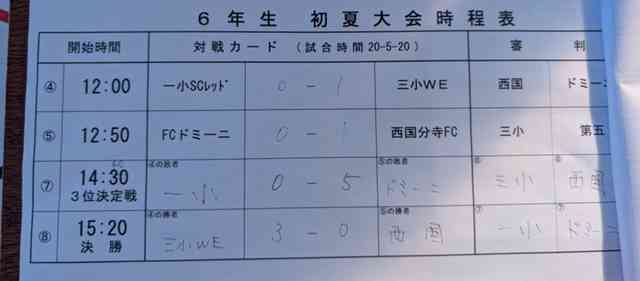 6年生 初夏大会時程表
開始時間 対戦カード (試合時間20-5-20) 審判
④ 12:00 一小SCレッド 0 - 1 三小WE 西国 ドミーニ
⑤ 12:50 FCドミーニ 0 - 1 西国分寺FC 三小 第五
⑦ 14:30 3位決定戦 ④の敗者 一小 0 - 5 ⑤の敗者 ドミーニ ⑧ 三小 西国
⑧ 15:20 決勝 ④の勝者 三小WE 3 - 0 ⑤の勝者 西国 ⑦ 一小 ドミーニ